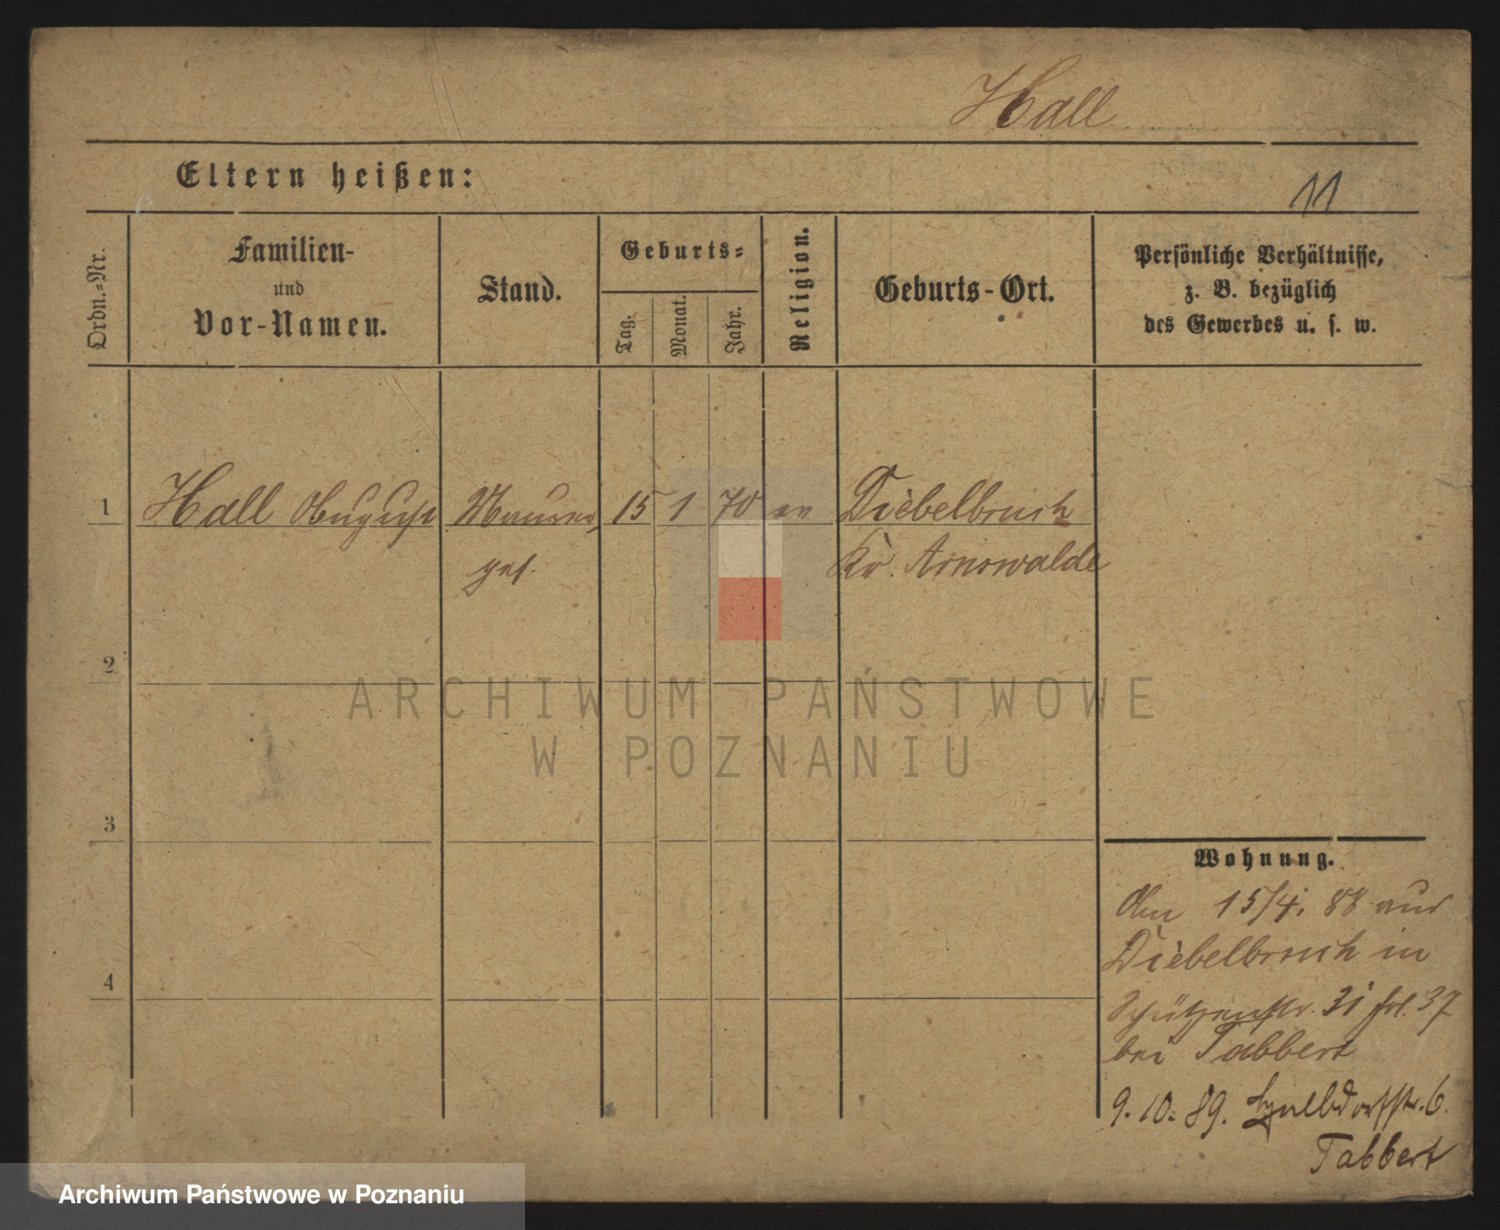 Hall
Eltern heißen:
11
Ordn.-Nr.
Familien-
und
Vor-Namen.
Stand.
Geburts-
Tag.
Monat.
Jahr.
Religion.
Geburts-Ort.
Persönliche Verhältnisse,
z. B. bezüglich
des Gewerbes u. s. w.
1 Hall August Maurer 15 1 70 ev Diebelbruch
ges. Kr. Arnswalde
2
ARCHIWUM PAŃSTWOWE
W POZNANIU
3
Wohnung.
15/4. 88 aus
Diebelbruch in
4
Schützenstr. 31 37
bei Tabbert
9.10.89. 6.
Tabbert
Archiwum Państwowe w Poznaniu